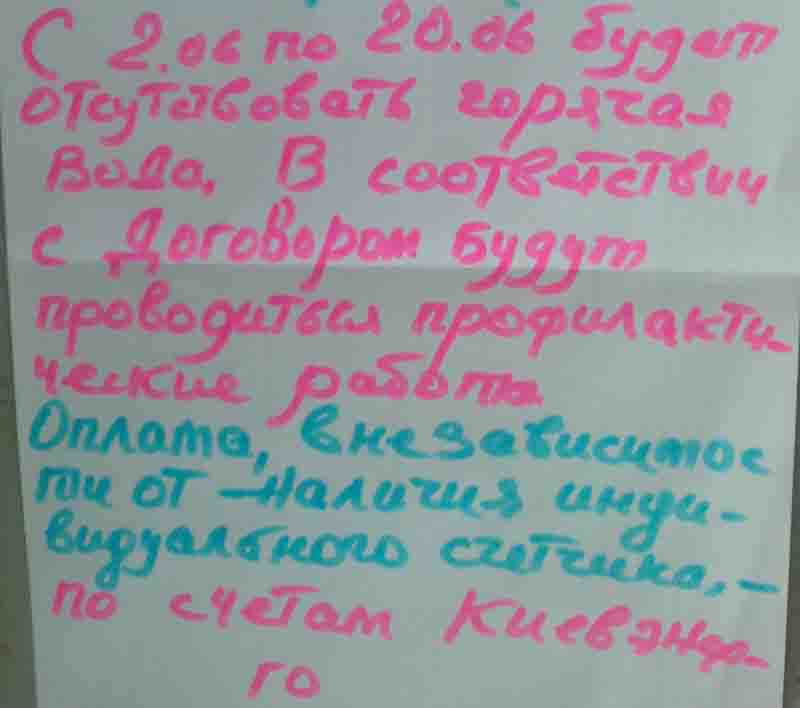 С 2.06 по 20.06 будет
отсутствовать горячая
вода. В соответствии
с Договором будут
проводиться профилакти-
ческие работы
Оплата, внезависимос
ти от - наличия инди-
видуального счетчика, -
по счетам Киевэнер-
го